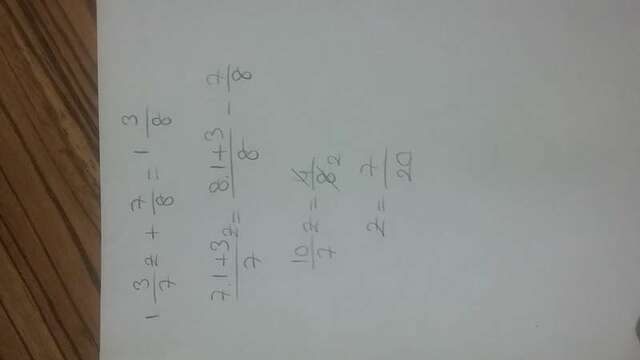 1 3/7 z + 7/8 = 1 3/8
7.1+3/7 z = 8.1+3/8 - 7/8
10/7 z = 4/8 2
z = 7/20